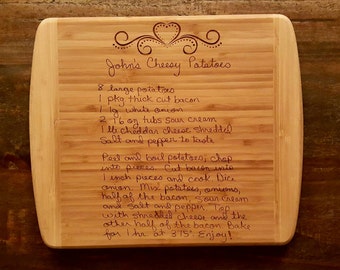 John's Cheesy Potatoes
8 large potatoes
1 pkg thick cut bacon
1 lg. white onion
2 16 oz tubs sour cream
1 lb cheddar cheese shredded
Salt and pepper to taste
Peel and boil potatoes; chop
into pieces. Cut bacon into
1 inch pieces and cook. Dice
onion. Mix potatoes, onions,
half of the bacon, sour cream
and salt and pepper. Top
with shredded cheese and the
other half of the bacon. Bake
for 1 hr at 375°. Enjoy!